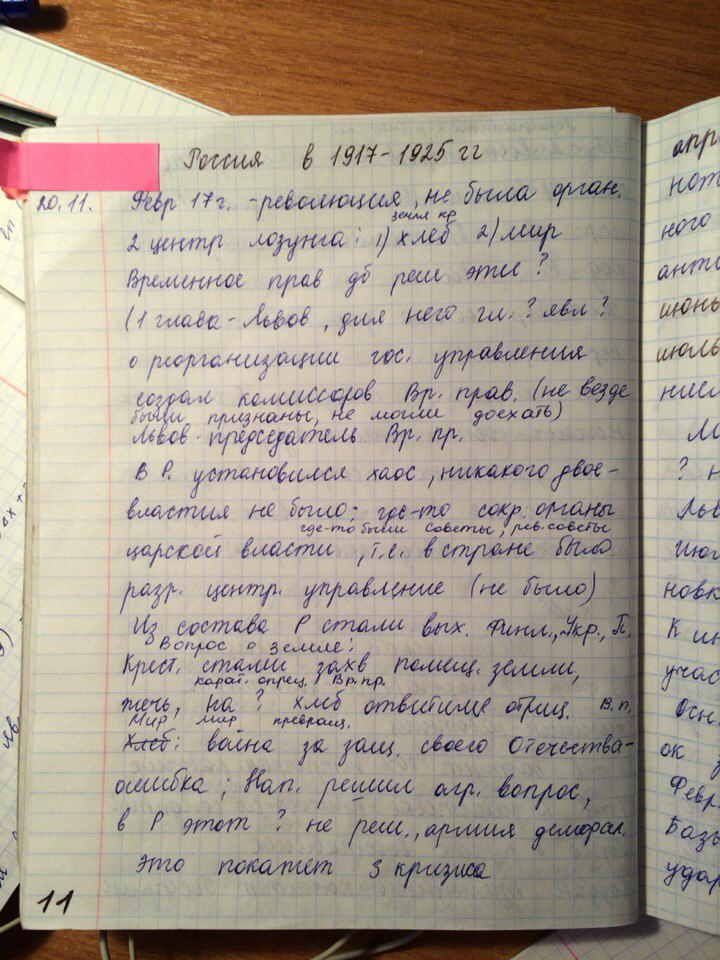 Россия в 1917-1925 гг
20.11. Февр 17 г. - революция, не была орган.
земля кр
2 центр лозунга: 1) хлеб 2) мир
Временное прав дб реш этие ?
(1 глава - Львов, для него гл. ? явл ?
о реорганизации гос. управления
создал комиссаров Вр. прав. (не везде
были признаны, не могли доехать)
Львов - председатель Вр. пр.
В Р. установился хаос, никакого двое-
властия не было; где-то сохр. органы
где-то были советы, рев. советы
царской власти, т.е. в стране было
разр. центр. управление (не было)
Из состава Р стали вых. Финл., Укр., П,
Вопрос о земле:
Крест. стали захв помещ. земли,
карат. Вр. пр.
жечь, на ? хлеб ответили отриц. В. п,
Мир мир превращ.
Хлеб: война за защ. своего Отечества-
ошибка; Нап. решил агр. вопрос,
в Р этот ? не реш., армия деморал.
Это покажет 3 кризиса
11
апр
нот
ного
анти
июнь
июль
нием
? н
Льв
Июл
новк
К ин
учас
Осн
ок
Февр
Базы
удар